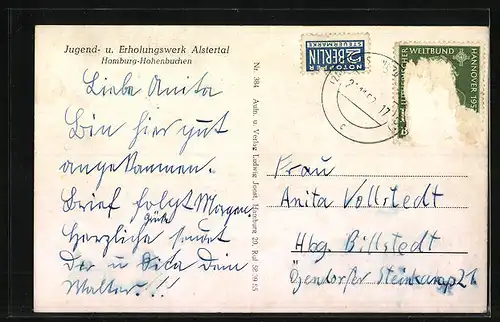 Jugend- u. Erholungswerk Alstertal
Hamburg-Hohenbuchen
Liebe Anita
Bin hier gut
angekommen.
Brief folgt Morgen.
Herzliche Grüße sendet
Dir u Dita Dein
Walter.!!
Nr. 384 Aufn. u. Verlag Ludwig Joost, Hamburg 20, Ruf 52 39 55
NOTOPFER
2 BERLIN
STEUERMARKE
WELTBUND
HANNOVER 1952
17
c
Frau
Anita Vollstedt
Hbg. Billstedt
Öjendorfer Steinkamp 26